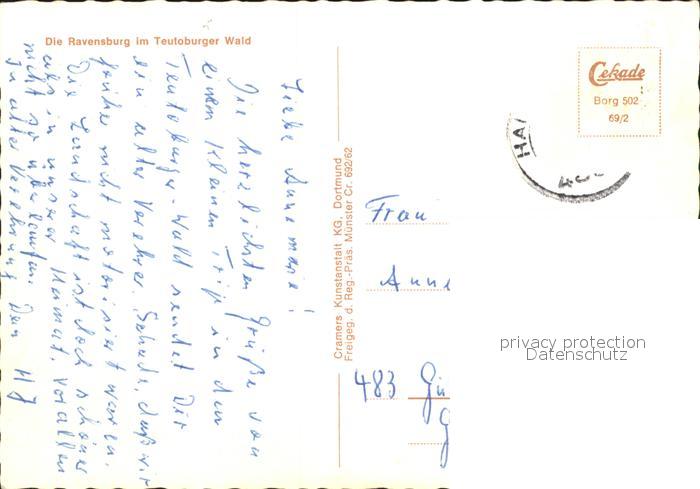 Die Ravensburg im Teutoburger Wald
Liebe Annemarie!
Die herzlichsten Grüße von
einem kleinen Trip in den
Teutoburger-Wald sendet Dir
ein alter Verehrer. Schade, daß wir
früher nicht motorisiert waren.
Die Landschaft ist doch schöner
als in unserer Heimat. Vor allem
nicht so überlaufen.
In alter Verehrung Dein HJ
Cramers Kunstanstalt KG, Dortmund
Freigeg. d. Reg.-Präs. Münster Cr. 692/62
Cekade
Borg 502
69/2
HA
Frau
Anne
483 Gü
privacy protection
Datenschutz